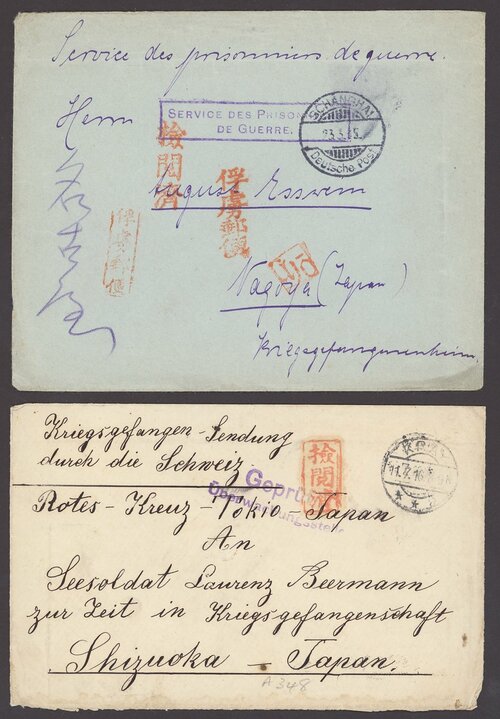 Service des prisonniers de guerre.
Herrn
SERVICE DES PRISON
DE GUERRE.
SCHANGHAI
23.3.15.
Deutsche Post
檢閲濟
俘虜郵便
俘虜郵便
August Esswein
Nagoya (Japan)
Kriegsgefangenenheim
Kriegsgefangen-Sendung
durch die Schweiz
檢閲
Geprü
Überwachungsstelle
Rotes-Kreuz-Tokio-Japan
An
Seesoldat Laurenz Beermann
zur Zeit in Kriegsgefangenschaft
Shizuoka - Japan.
A 348